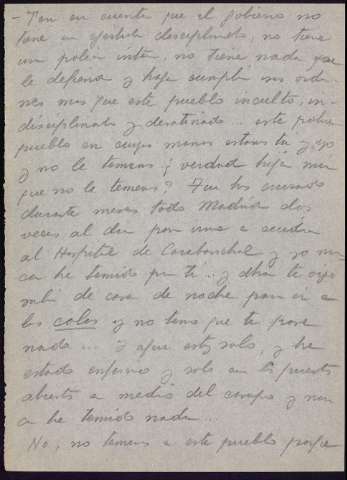 - Ten en cuenta que el gobierno no
tiene un ejército disciplinado, no tiene
un poder inter, no tiene nada que
le defienda y haga cumplir sus orde-
nes mas que este pueblo inculto, in-
disciplinado y desatinado... este pobre
pueblo en cuyas manos estais tu y yo
y no le temeas ¿verdad hija mia
que no le temeas? Tu has cruzado
durante meses todo Madrid dos
veces al dia para venir a acudir
al Hospital de Carabanchel y yo nun
ca he temido por ti... y ahora te oigo
salir de casa de noche para ir a
las colas y no temo que te pase
nada... y aqui estoy solo, y he
estado enfermo y solo con la puerta
abierta a medio del campo y nun
ca he temido nada...
No, no temeas a este pueblo porque